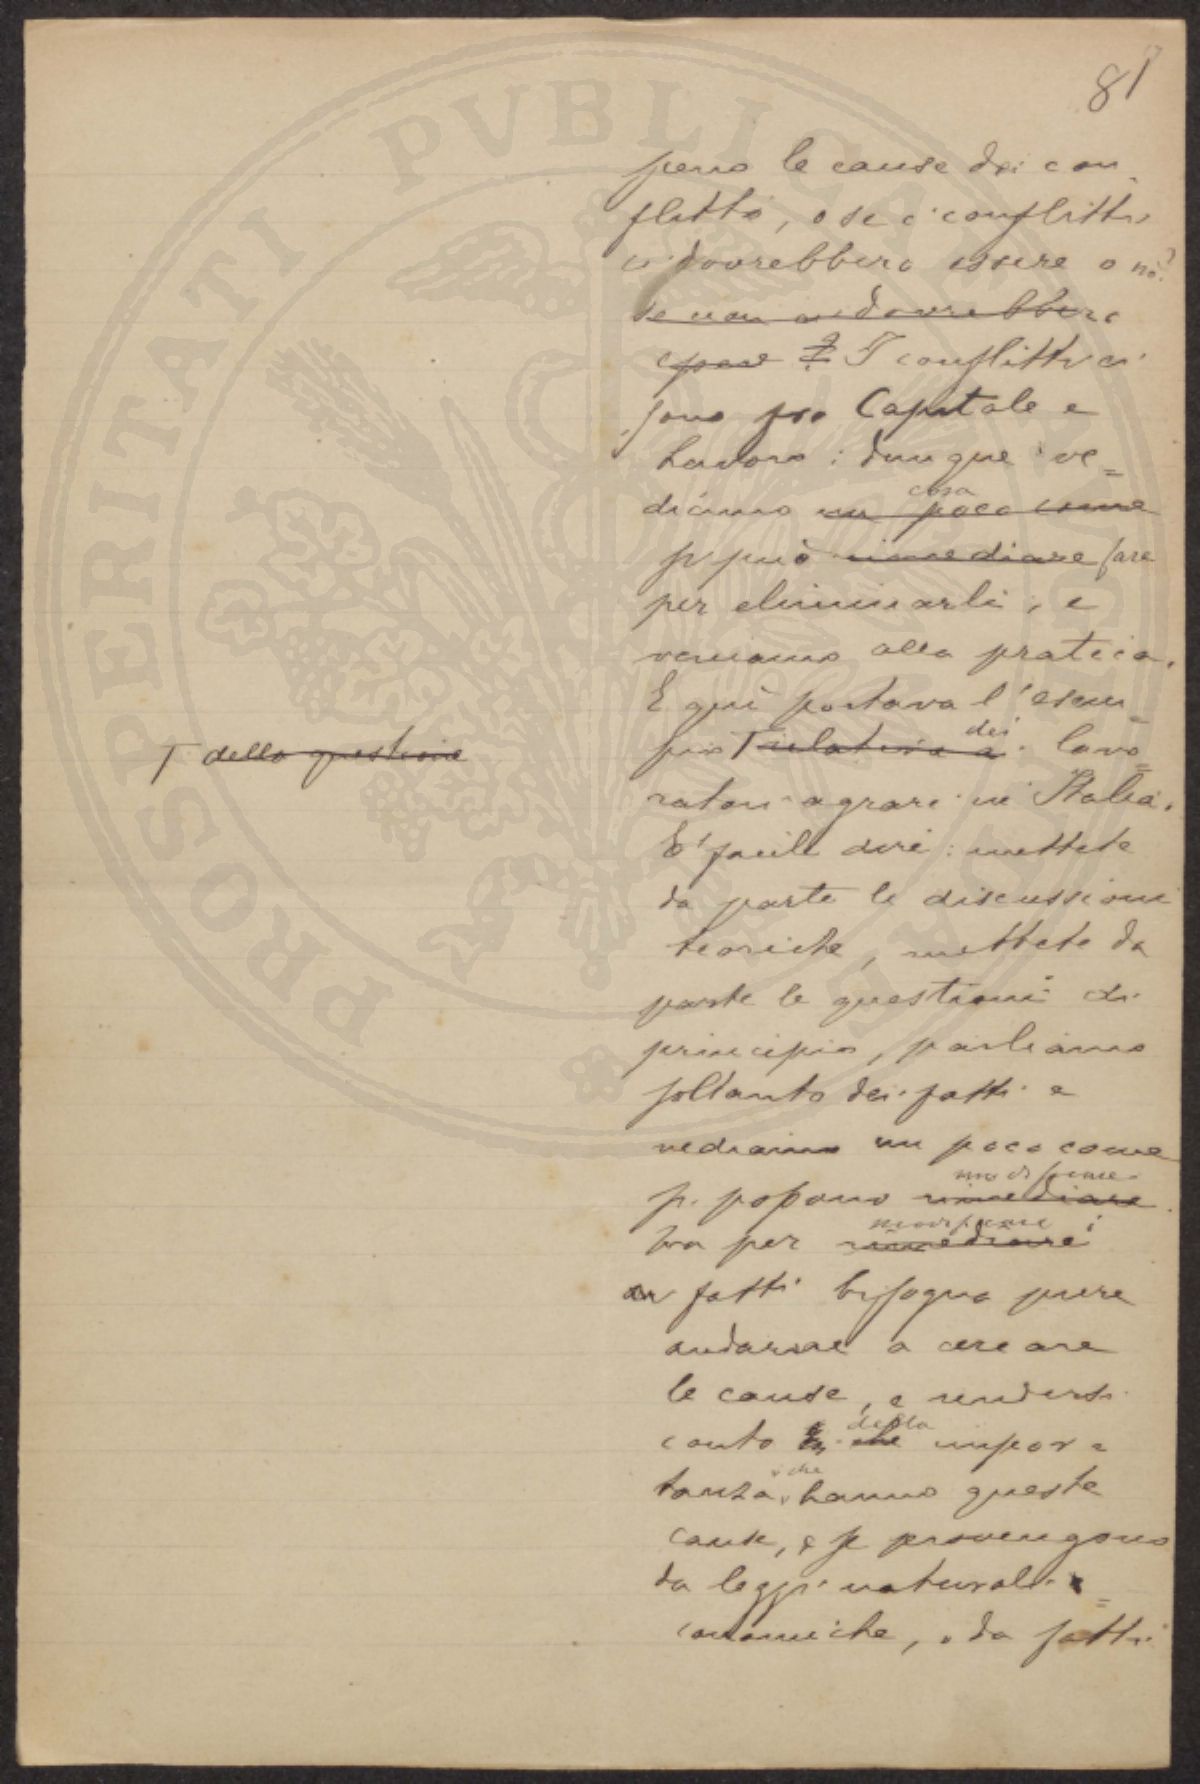 81
peno le cause dei con-
flitti, o se i conflitti
ci dovrebbero essere o no?
se non ci dovrebbero
essere? I conflitti ci
sono fra Capitale e
Lavoro: dunque ve=
diamo un poco come
cosa
si può rimediare fare
per eliminarli, e
veniamo alla pratica.
E qui portava l'esem-
pio T relativo a dei lavo=
T della questione
ratori agrari in Italia.
E' facile dire: mettete
da parte le discussioni
teoriche, mettete da
parte le questioni di
principio, parliamo
soltanto dei fatti e
vediamo un poco come
si possono rimediare.
modificare
ma per rimediare i
modificare
fatti bisogna pure
andarne a cercare
le cause, e rendersi
conto che impor=
della
tanza, che hanno queste
cause, e se provengono
da leggi naturali e=
conomiche, o da fatti
PROSPERITATI PVBLICAE